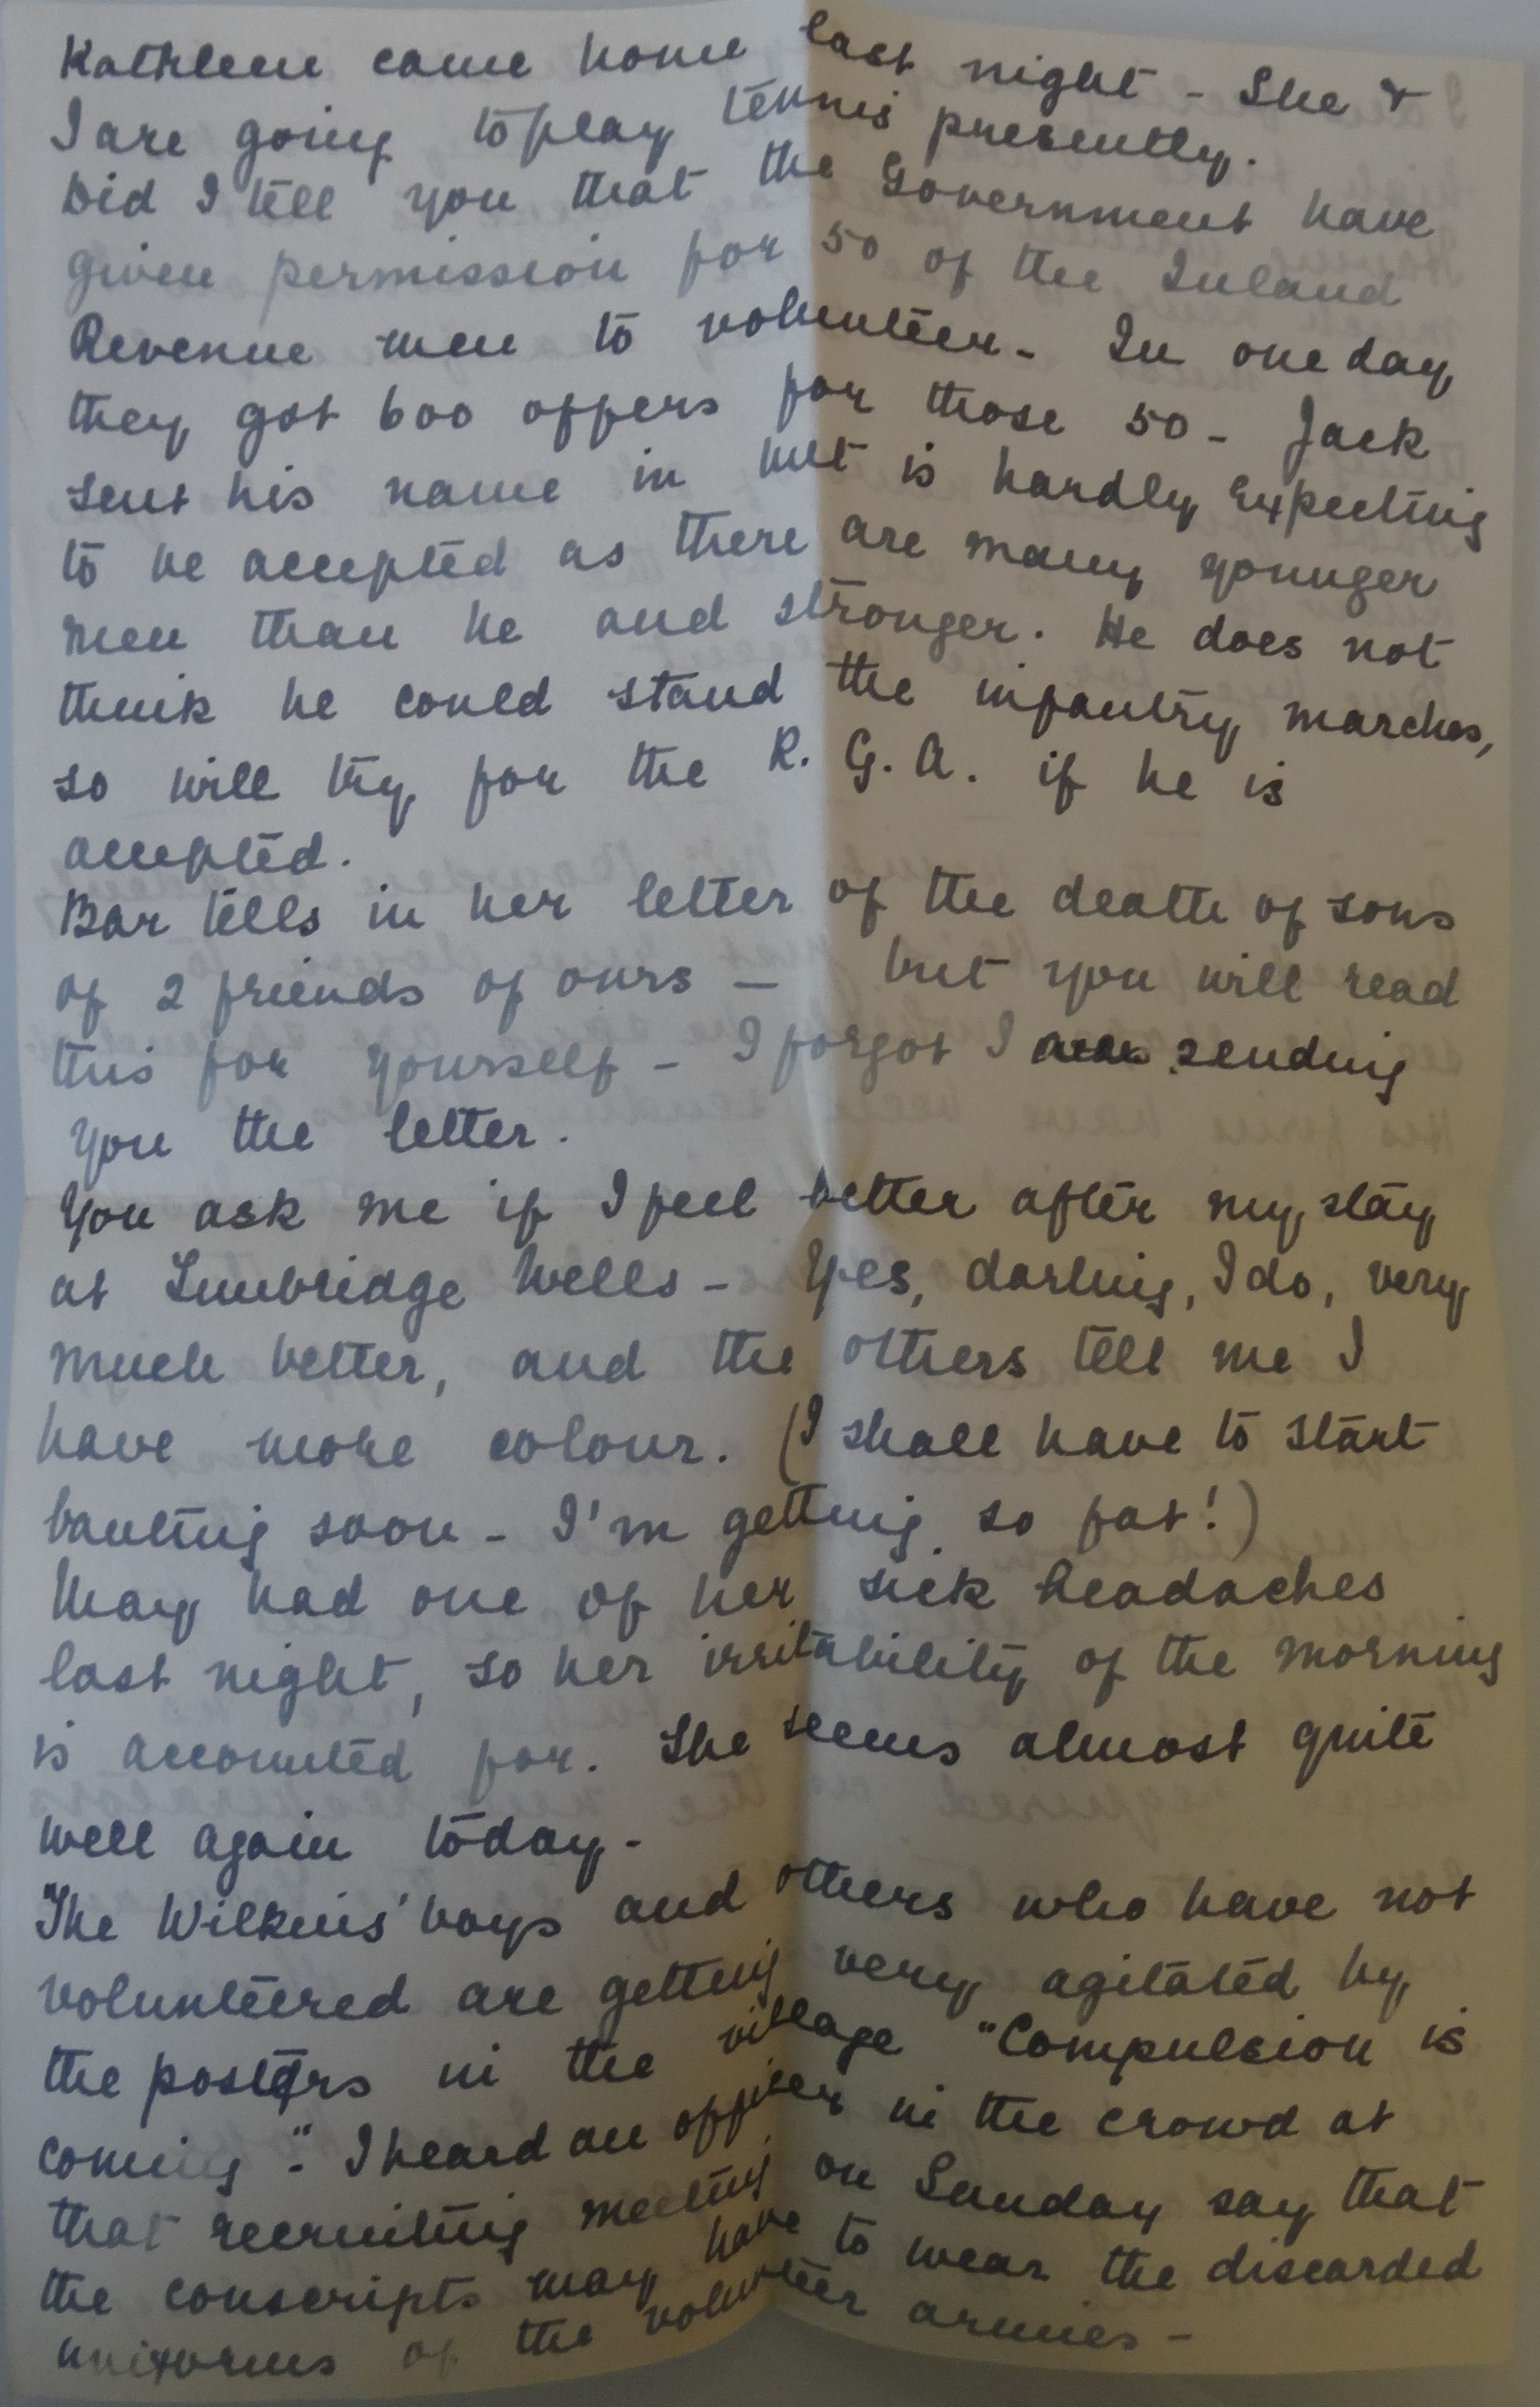 Kathleen came home last night - She &
I are going to play tennis presently.
Did I tell you that the Government have
given permission for 50 of the Inland
Revenue men to volunteer - In one day
they got 600 offers for those 50 - Jack
sent his name in but is hardly expecting
to be accepted as there are many younger
men than he and stronger. He does not
think he could stand the infantry marches,
so will try for the R. G. A. if he is
accepted.
Bar tells in her letter of the death of sons
of 2 friends of ours - but you will read
this for yourself - I forgot I was sending
you the letter.
You ask me if I feel better after my stay
at Tunbridge Wells - Yes, darling, I do, very
much better, and the others tell me I
have more colour. (I shall have to start
banting soon - I'm getting so fat!)
May had one of her sick headaches
last night, so her irritability of the morning
is accounted for. She seems almost quite
well again today -
The Wilkins' boys and others who have not
volunteered are getting very agitated by
the posters in the village "Compulsion is
coming". I heard an officer in the crowd at
that recruiting meeting on Sunday say that
the conscripts may have to wear the discarded
uniforms of the volunteer armies -